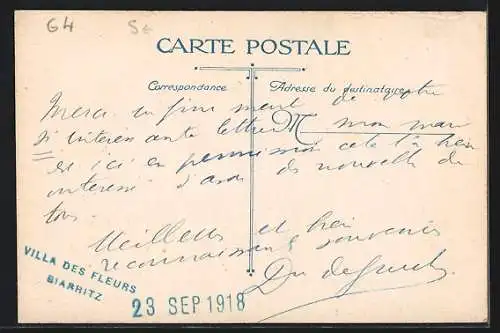 64
CARTE POSTALE
Correspondance
Adresse du destinataire
Merci infiniment de votre
si intéressante lettre mon mari
est ici en permission cela l'a bien
intéressé d'avoir des nouvelles de
tous.
Meilleurs et bien
reconnaissants souvenirs
VILLA DES FLEURS
BIARRITZ
23 SEP 1918